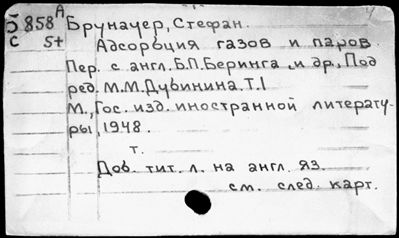 А
Б 858 Брунауер, Стефан.
С 5+ Адсорбция газов и паров.
Пер. с англ. Б.П. Беринга и др., Под
ред. М.М. Дубинина. Т.I
М., Гос. изд. иностранной литерату-
ры, 1948.
т.
Доб. тит. л. на англ. яз.
см. след. карт.